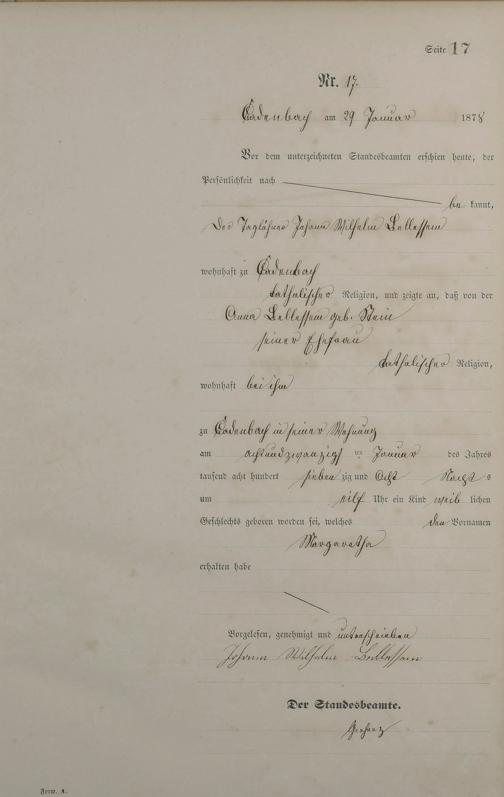 Seite 17
Nr. 17.
Cadenbach am 29 Januar 1878
Vor dem unterzeichneten Standesbeamten erschien heute, der
Persönlichkeit nach
be kannt,
der Taglöhner Johann Wilhelm Bellessem
wohnhaft zu Cadenbach
katholischer Religion, und zeigte an, daß von der
Anna Bellessem geb. Stein
seiner Ehefrau
katholischer Religion,
wohnhaft bei ihm
zu Cadenbach in seiner Wohnung
am achtundzwanzigsten Januar des Jahres
tausend acht hundert sieben zig und Acht Nachts
um eilf Uhr ein Kind weib lichen
Geschlechts geboren worden sei, welches den Vornamen
Margaretha
erhalten habe
Vorgelesen, genehmigt und unterschrieben
Johann Wilhelm Bellessem
Der Standesbeamte.
Form. A.